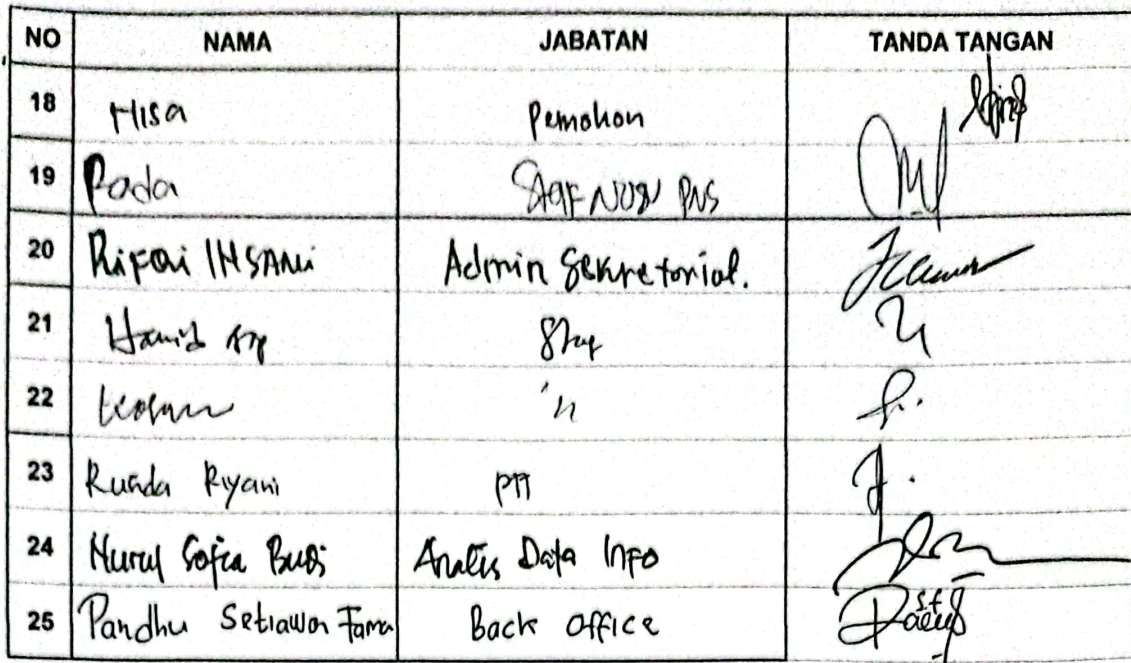 NO NAMA JABATAN TANDA TANGAN
18 Hisa Pemohon
19 Rada Staf Non PNS
20 Rifai Insani Admin Sekretorial.
21 Hamid Staf
22 "
23 Runda Riyani PTT
24 Nurul Sofia Budi Analis Data Info
25 Pandhu Setiawan Tama Back Office